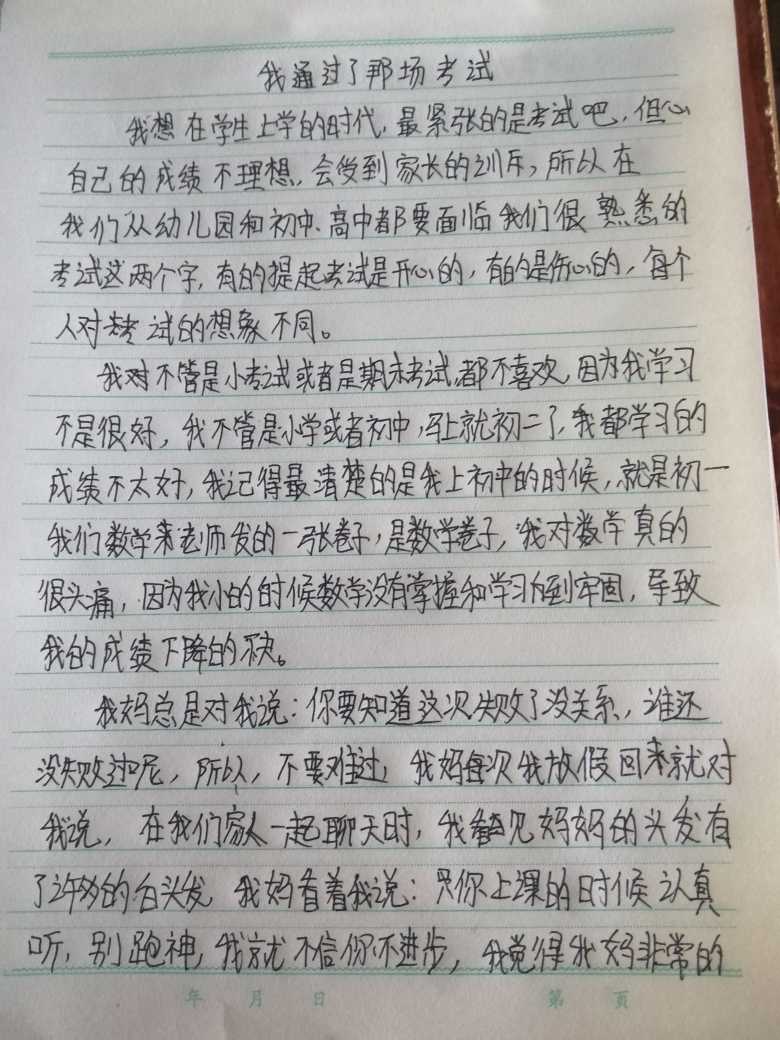 我通过了那场考试
我想在学生上学的时代,最紧张的是考试吧,但心
自己的成绩不理想,会受到家长的训斥,所以在
我们从幼儿园和初中、高中都要面临我们很熟悉的
考试这两个字,有的提起考试是开心的,有的是伤心的,每个
人对考试的想象不同。
我对不管是小考试或者是期末考试,都不喜欢,因为我学习
不是很好,我不管是小学或者初中,马上就初二了,我都学习的
成绩不太好,我记得最清楚的是我上初中的时候,就是初一
我们数学老师发的一张卷子,是数学卷子,我对数学真的
很头痛,因为我小的时候数学没有掌握和学习的到牢固,导致
我的成绩下降的快。
我妈总是对我说:你要知道这次失败了没关系,谁还
没失败过呢,所以,不要难过,我妈每次我放假回来就对
我说,在我们家人一起聊天时,我看见妈妈的头发有
了许多的白头发 我妈看着我说:只你上课的时候认真
听,别跑神,我就不信你不进步,我觉得我妈非常的
年 月 日 第 页